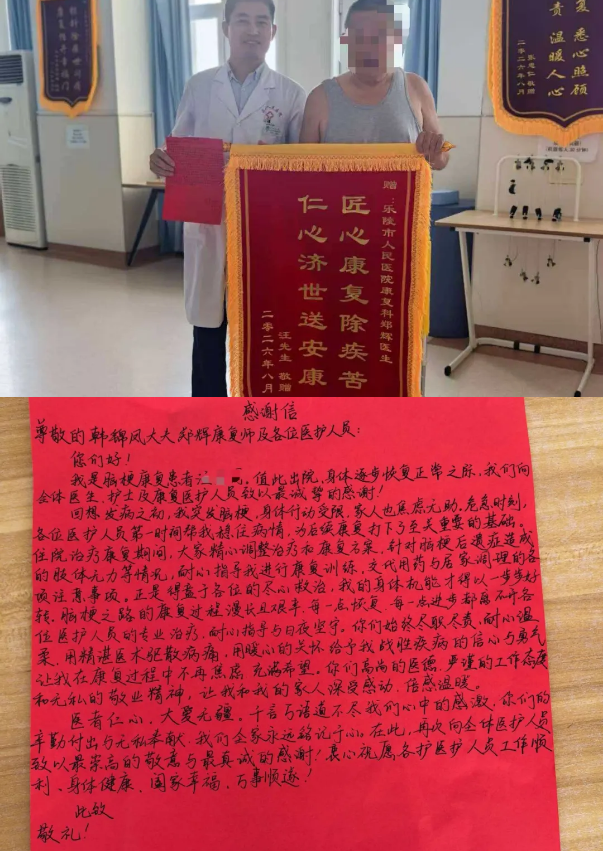 悉心照顾
温暖人心
二〇二六年八月
赠：乐陵市人民医院康复科郑辉医生
匠心康复除疾苦
仁心济世送安康
汪先生 敬赠
二零二六年八月
感谢信
尊敬的韩锦凤大夫,郑辉康复师及各位医护人员：
你们好！
我是脑梗康复患者，值此出院，身体逐步恢复正常之际，我们向
全体医生、护士及康复医护人员致以最诚挚的感谢！
回想发病之初，我突发脑梗，身体行动受限，家人也焦虑无助。危急时刻，
各位医护人员第一时间帮我稳住病情，为后续康复打下了至关重要的基础。
住院治疗康复期间，大家精心调整治疗和康复方案，针对脑梗后遗症造成
的肢体无力等情况，耐心指导我进行康复训练，交代用药与居家调理的各
项注意事项。正是得益于各位的尽心救治，我的身体机能才得以一步步好
转。脑梗之路的康复过程漫长且艰辛，每一点恢复、每一点进步都离不开各
位医护人员的专业治疗、耐心指导与日夜坚守。你们始终尽职尽责、耐心温
柔，用精湛医术驱散病痛，用暖心的关怀给予我战胜疾病的信心与勇气，
让我在康复过程中不再焦虑，充满希望。你们高尚的医德、严谨的工作态度
和无私的敬业精神，让我和我的家人深受感动、倍感温暖。
医者仁心，大爱无疆。千言万语道不尽我们心中的感激，你们的
辛勤付出与无私奉献，我们全家永远铭记于心。在此，再次向全体医护人员
致以最崇高的敬意与最真诚的感谢！衷心祝愿各护医护人员工作顺
利、身体健康、阖家幸福、万事顺遂！
此致
敬礼！